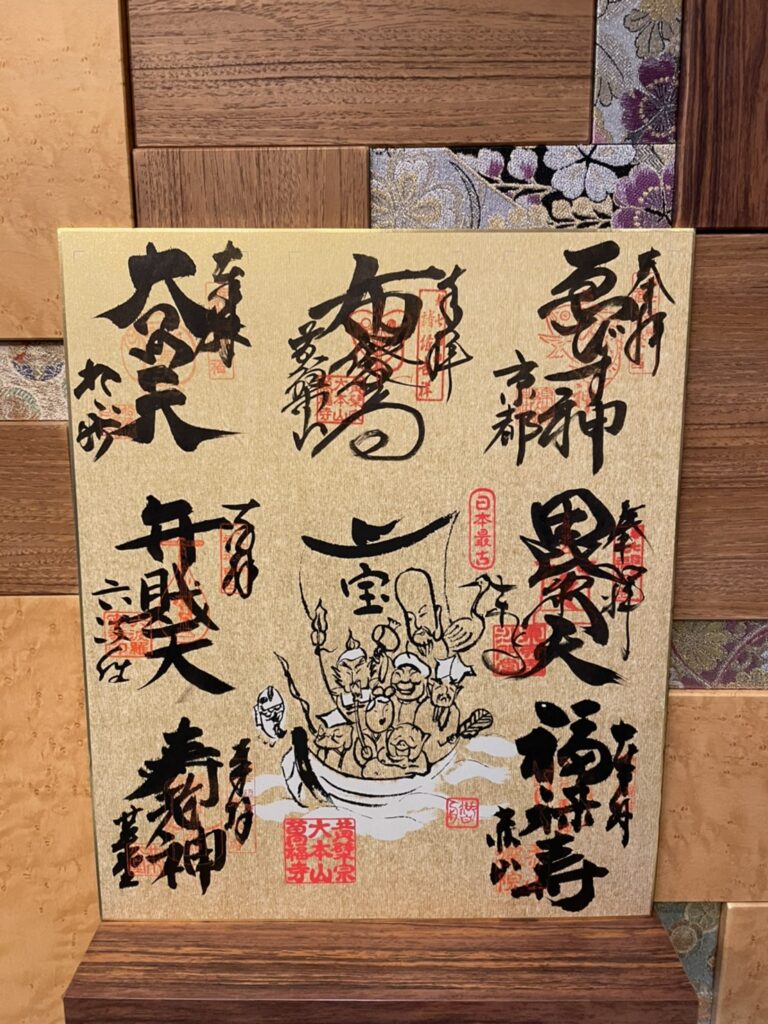 奉拝
ゑびす神
京都
奉拝
布袋尊
黄檗山
黄檗宗
大本山
萬福寺
奉拝
大黒天
松ヶ崎
奉拝
毘沙門天
日本最古
宝
奉拝
弁財天
六波羅
奉拝
福禄寿
赤山
黄檗宗
大本山
萬福寺
奉拝
寿老神
革堂